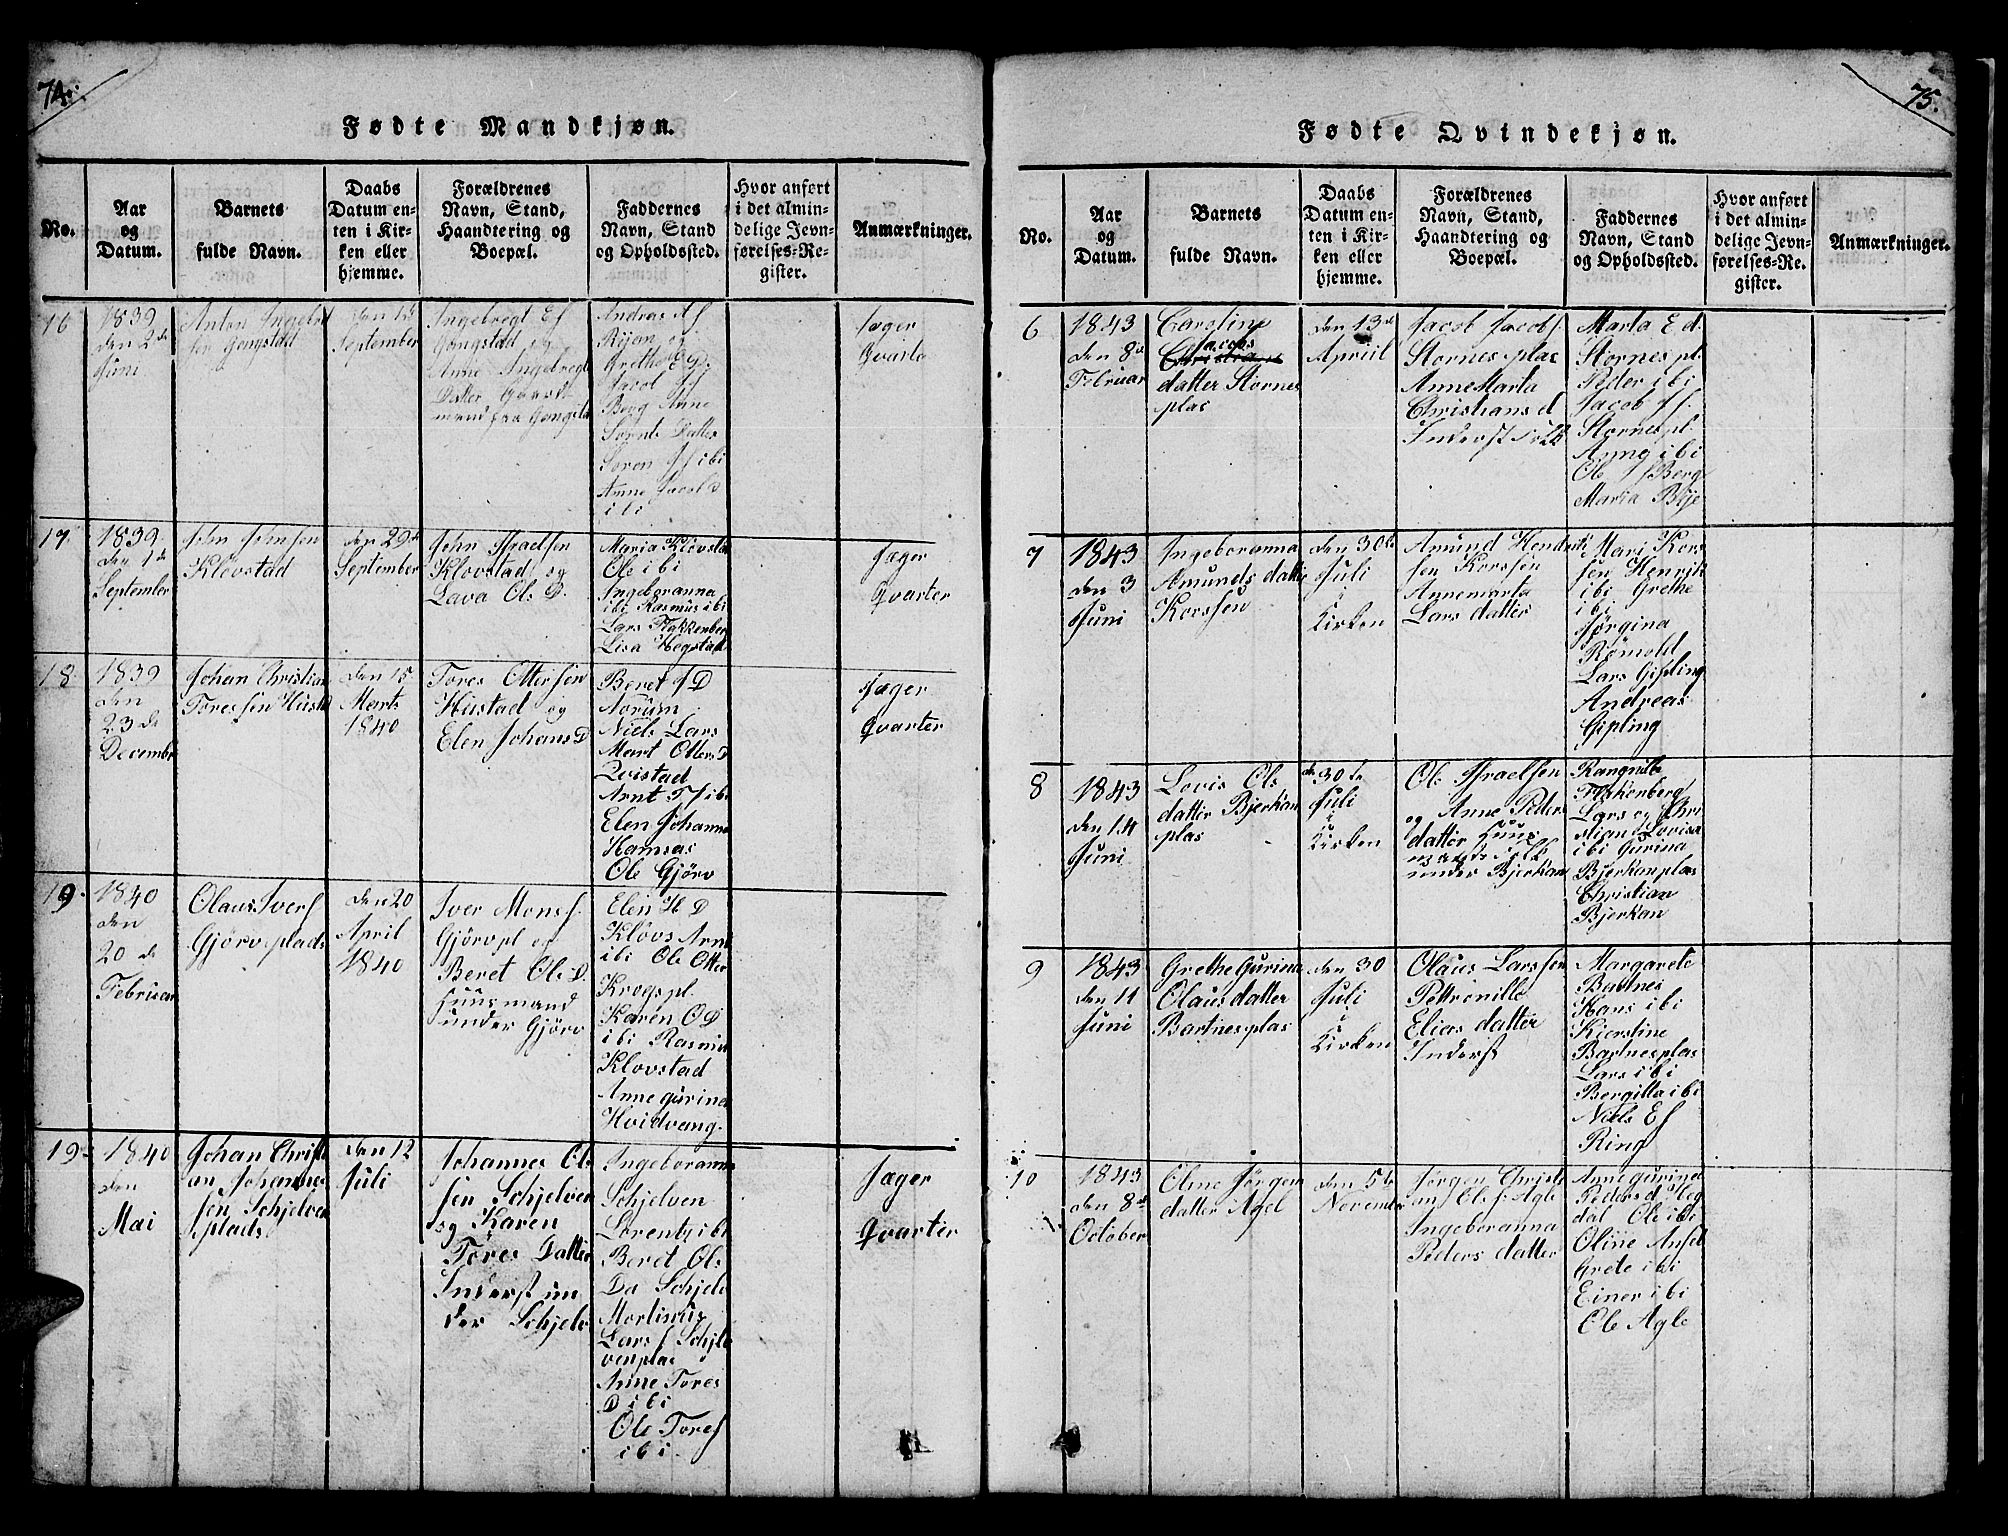 74.
Fødte Mandkjøn.
No.
Aar
og
Datum.
Barnets
fulde Navn.
Daabs
Datum en-
ten i Kir-
ken eller
hjemme.
Forældrenes
Navn, Stand,
Haandtering og
Boepæl.
Faddernes
Navn, Stand
og Opholdssted.
Hvor anført
i det almin-
delige Jevn-
førelses-Re-
gister.
Anmærkninger.
16
1839
den 2de
Juni
Anton Ingebrt
sen Gongstad
den 15
September
Ingebregt Ef
Gongstad og
Anne Ingebregt
Datter Gaard
mand paa Gongsta
Andreas
Grethe
Jacob
Berg Anne
Datter
Soren J f ibi
Anne Jacob D
ibi
Jæger
Qvarte
17
1839
den 1de
September
John Johnsen
Klövstad
den 29de
September
John Israelsen
Klovstad og
Lava Ols D.
Maria Klövsta
Ole ibi
Ingeboranna
ibi Rasmus ibi
Lars Flakkenber
Lisa Hegstad
Jæger
Qvarter
18
1839
den
23de
Decembr
Johan Christian
Toressen Husta
den 15
Marts
1840
Tores Ottersen
Hustad og
Elen Johans D
Beret J D
Norum
Niels Lars
Mart Otters D
Qvistad
Arnt T f ib
Elen Johanna
Hamsas
Ole Gjörv
Jæger
Qvarter
19
1840
den
20 de
Februar
Olaus Iverf
Gjörv plads
den 20
April
1840
Iver Mons f.
Gjörvpl og
Beret Ole D.
Huusmand
under Gjörv
Elen H D
Klövs Arnt
ibi Ole Otter
Krogspl.
Karen O D
ibi Rasmus
Klovstad
Anne gurina
Hvidvang.
19
1840
den
Mai
Johan Christi
an Johannes
sen Schjelven
plads
den 12
Juli
Johannes Ol
sen Schjelven
og Karen
Töres Datter
Inderst un
der Schjelv
Ingeboranna
Schjelven
Lorents ibi
Beret Ols
Da Schjelv
Mortinus
Lars f Schjel
venplas
Anne Tores
D ibi
Ole Toref
ibi
Jæger
Qvarter
75.
Fødte Qvindekjøn.
No.
Aar
og
Datum.
Barnets
fulde Navn.
Daabs
Datum en-
ten i Kir-
ken eller
hjemme.
Forældrenes
Navn, Stand,
Haandtering og
Boepæl.
Faddernes
Navn, Stand
og Opholdssted.
Hvor anført
i det almin-
delige Jevn-
førelses-Re-
gister.
Anmærkninger.
6
1843
den 8de
Februar
Caroline
Jacobs
datter Stornes
plas
den 13de
Apriil
Jacob Jacobs.
Stornesplas
Anne Marta
Christians d
Inderst
Marta E d.
Stornes pl.
Peder ibi
Jacob J f.
Stornespl
Anne ibi
Ole f Berg
Maria Bye
7
1843
den 3
Juni
Ingeboranna
Amunds datter
Korssen
den 30te
Juli
i
Kirken
Amund Hendrik
sen Korssen
Annemarta
Lars datter
Mari Kors
sen Henrik
ibi Grethe
ibi
Jörgina
Römold
Lars Gipling
Andreas
Gipling
8
1843
den 14
Juni
Lovis Ols
datter Bjerkan
plas
den 30te
Juli
i
Kirken
Ole Israelsen
og Anne Peders
datter Huus
under Bjerkan
Rangnille
Flakenberg
Lars og Chri
stian Lovisa
ibi Gurina
Bjerkanplas
Christian
Bjerkan
9
1843
den 11
Juni
Grethe Gurina
Olaus datter
Bartnes plas
den 30
Juli
i
Kirken
Olaus Larssen
Pettronille
Elias datter
Inderst
Margarete
Bartnes
Hans ibi
Kjerstine
Bartnesplas
Lars ibi
Bergitta ibi
Niels Ef
Ring
10
1843
den 8de
October
Oline Jörgen
datter Agel
den 5te
November
Jörgen Christi
an Ole f. Agle
Ingeboranna
Peders datter
Anne gurina
Peders d Heg
dal Ole ibi
Oline
Grete ibi
Einer ibi
Ole Agle